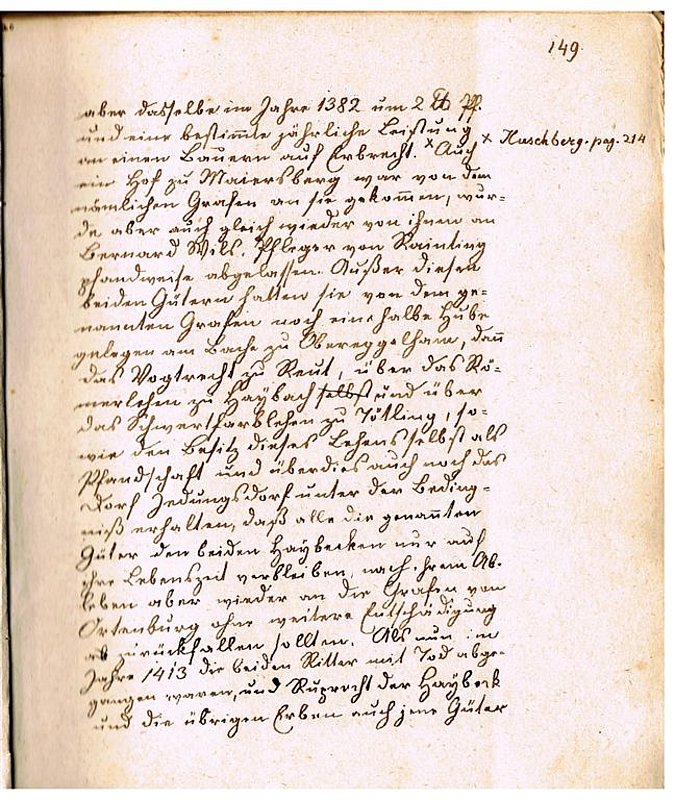 149.
aber dasselbe im Jahre 1382 um 2 ℔ Pf.
und eine bestimmte jährliche Leistung
an einen Bauern auf Erbrecht. × Auch
× Huschberg. pag. 214
ein Hof zu Maiersberg war von dem
nämlichen Grafen an sie gekom̅en, wur=
de aber auch gleich wieder von ihnen an
Bernard Wils, Pfleger von Rainting
pfandweise abgelassen. Außer diesen
beiden Gütern hatten sie von dem ge=
nannten Grafen noch eine halbe Hube
gelegen am Bache zu Obereggelham, dan̅
das Vogtrecht zu Reut, über das Rö=
merlehen zu Haybach selbst und über
das Schwertfarblehen zu Tötling, so=
wie den Besitz dieses Lehens selbst als
Pfandschaft und überdies auch noch das
Dorf Jedungsdorf unter der Beding=
niß erhalten, daß alle die genan̅ten
Güter den beiden Haybecken nur auf
ihre Lebenszeit verbleiben, nach ihrem Ab=
leben aber wieder an die Grafen von
Ortenburg ohne weitere Entschädigung
ab zurückfallen sollten. Als nun im
Jahre 1413 die beiden Ritter mit Tod abge=
gangen waren, und Ruprecht der Haybeck
und die übrigen Erben auch jene Güter